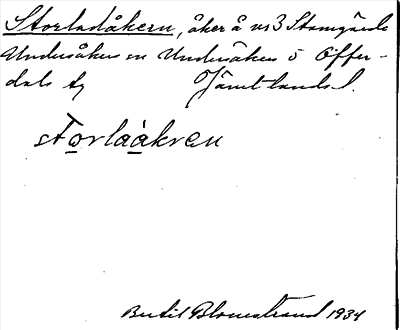 Storladåkern, åker å nr 3 Stamgärde
Undersåkers sn Undersåkers o Offer-
dals tg Jämtlands l.
storlaåkren
Bertil Blomstrand 1934